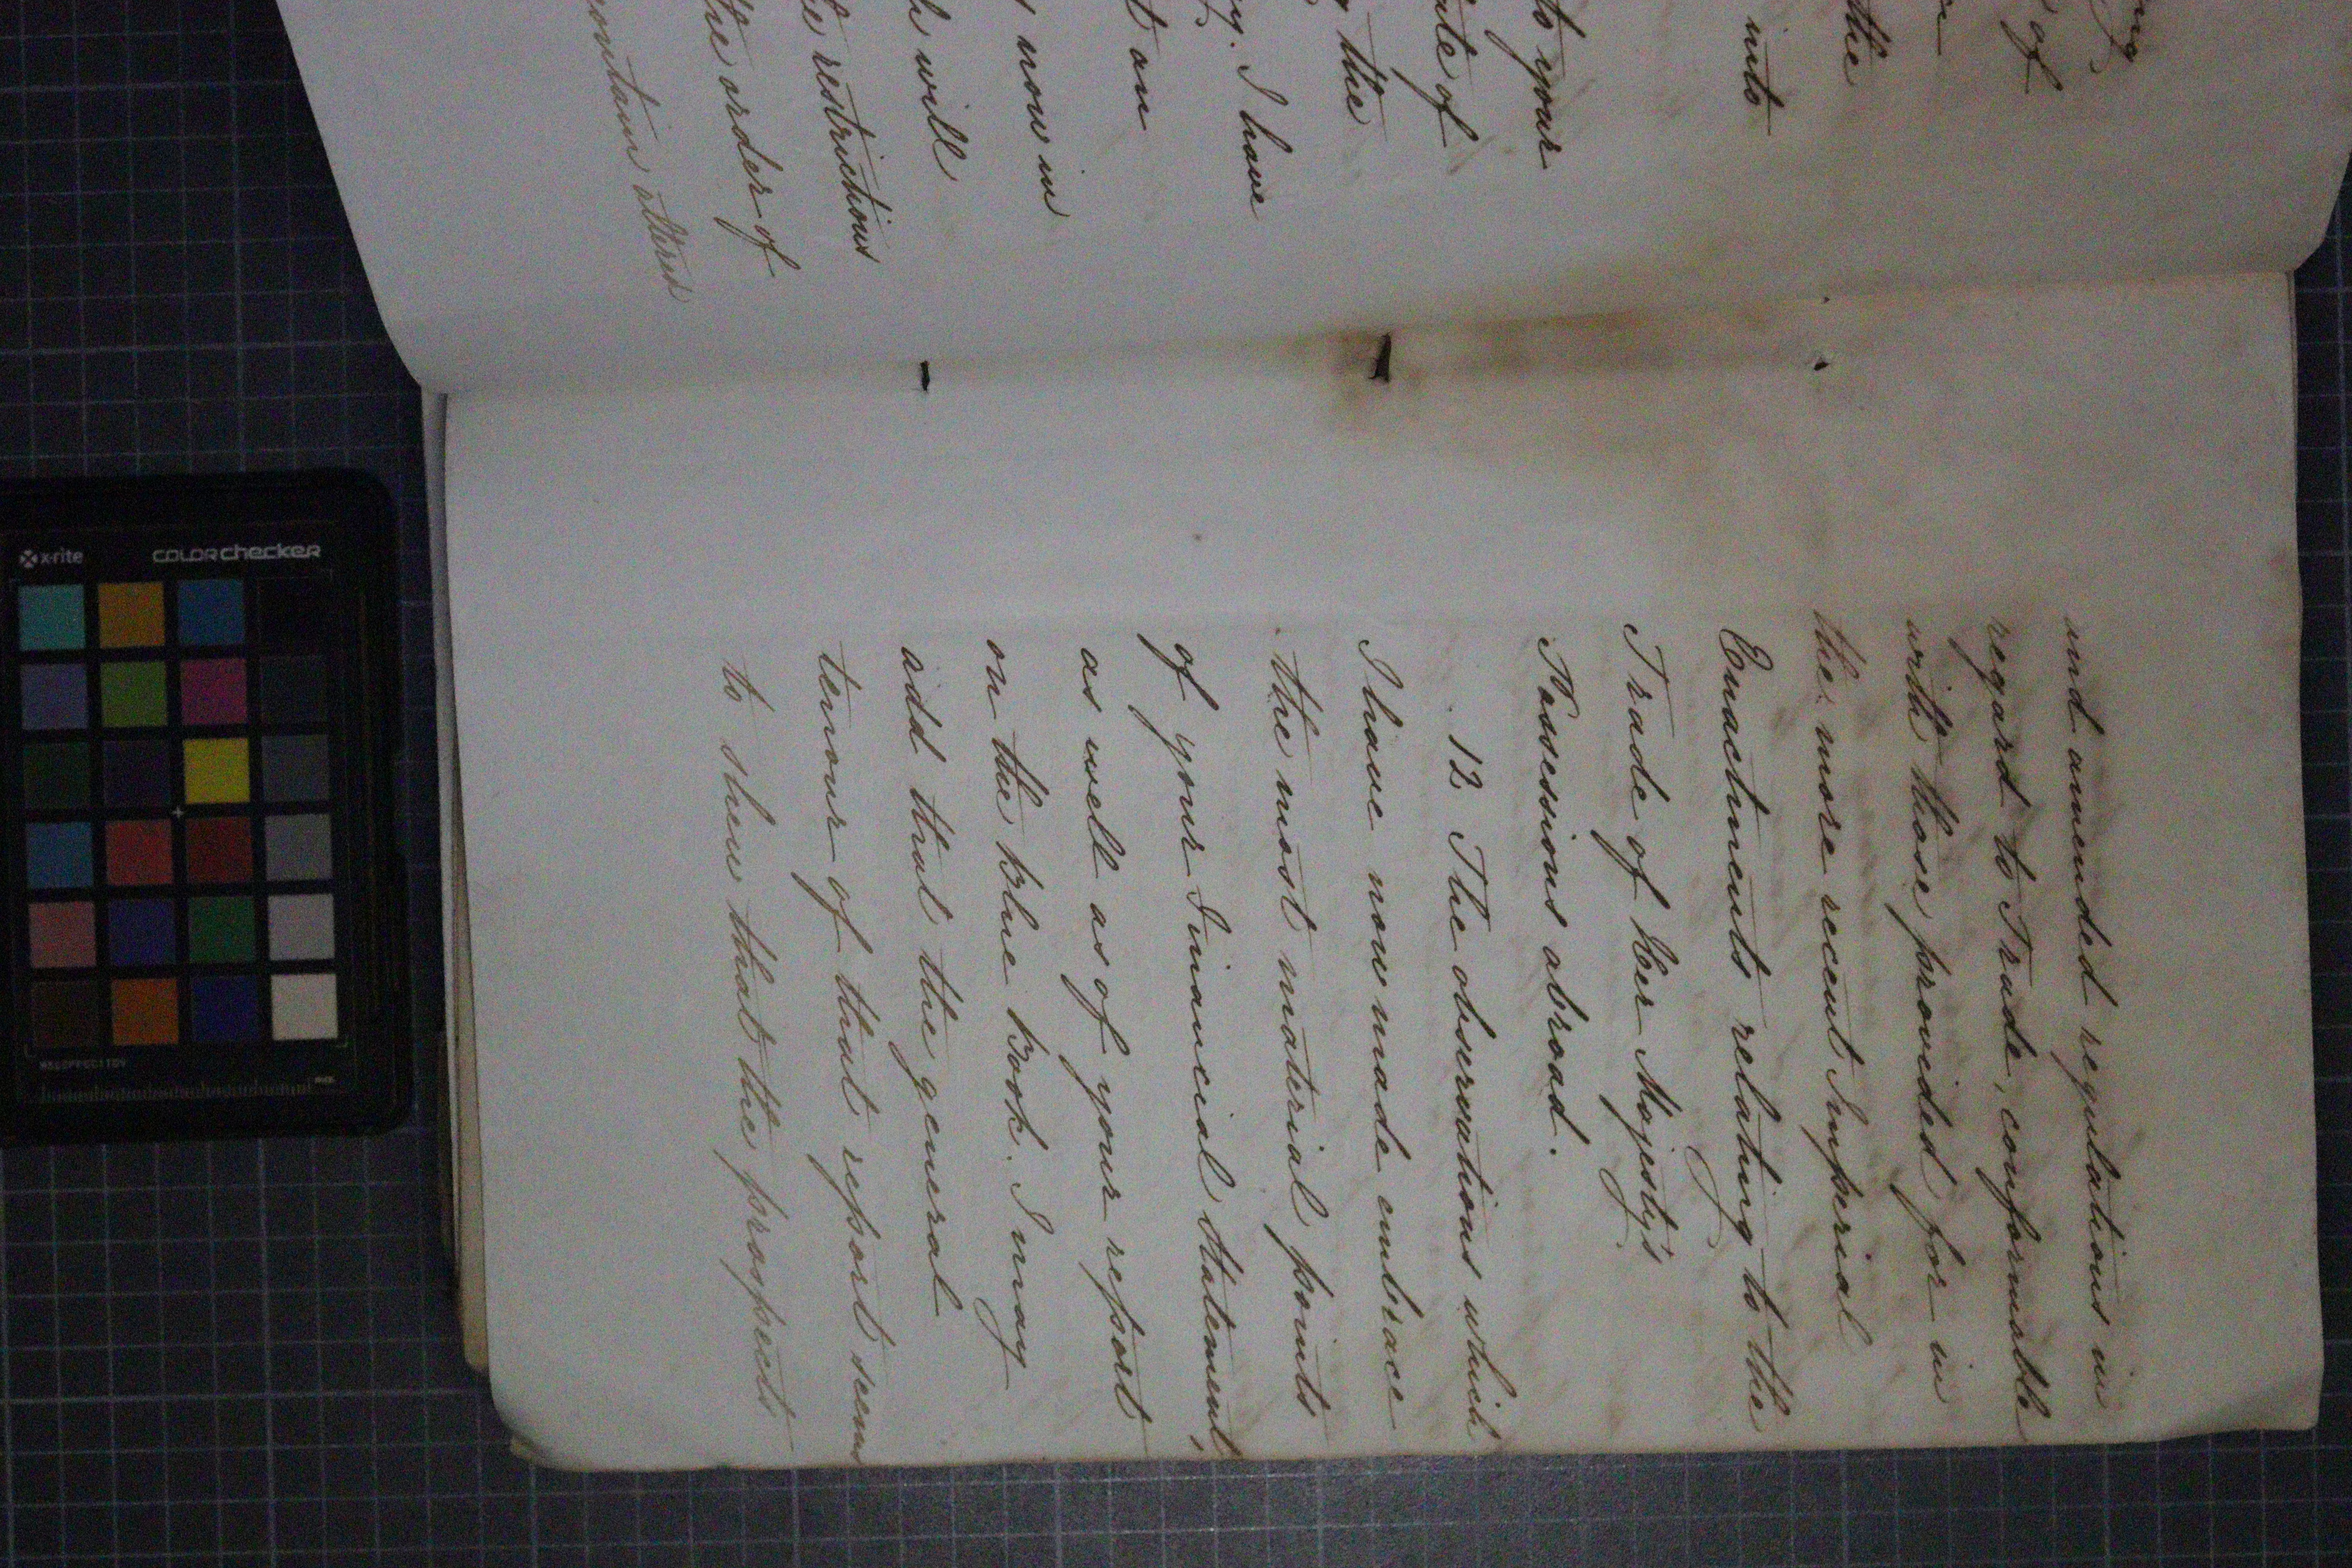 ing
of
the
into
to your
ate of
the
I have
t on
now in
h will
restrictions
the order of
contain altered
and amended regulations in
regard to Trade, conformable
with those provided for in
the more recent Imperial
Enactments relating to the
Trade of Her Majesty's
Possessions abroad.
12 The observations which
I have now made embrace
the most material points
of your Financial Statement,
as well as of your report
on the blue book. I may
add that the general
tenour of that report seems
to shew that the prospects
x-rite
colorchecker